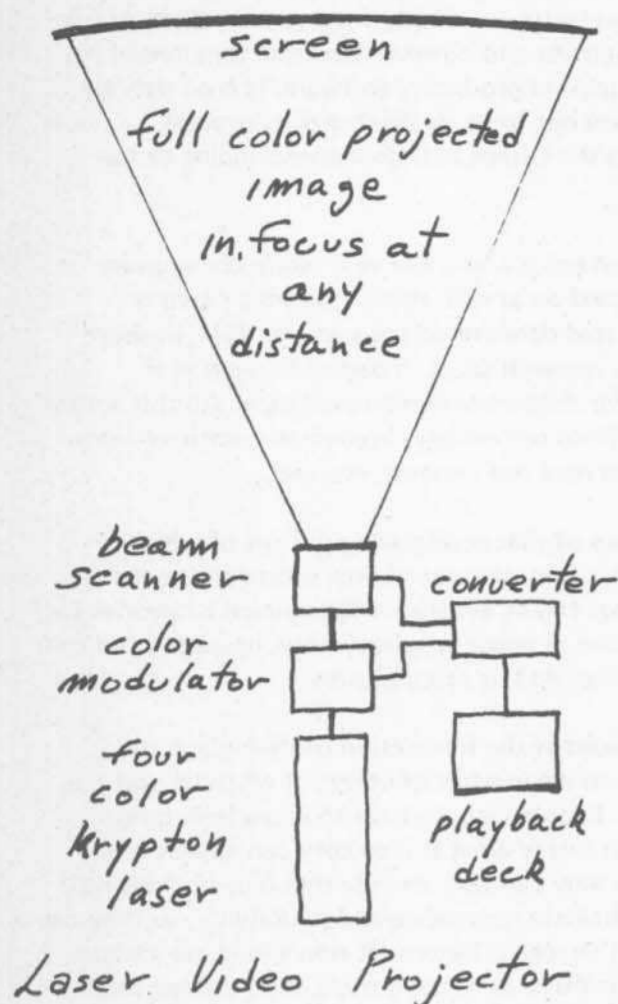 screen
full color projected
image
in focus at
any
distance
beam
scanner
converter
color
modulator
four
color
krypton
laser
playback
deck
Laser Video Projector